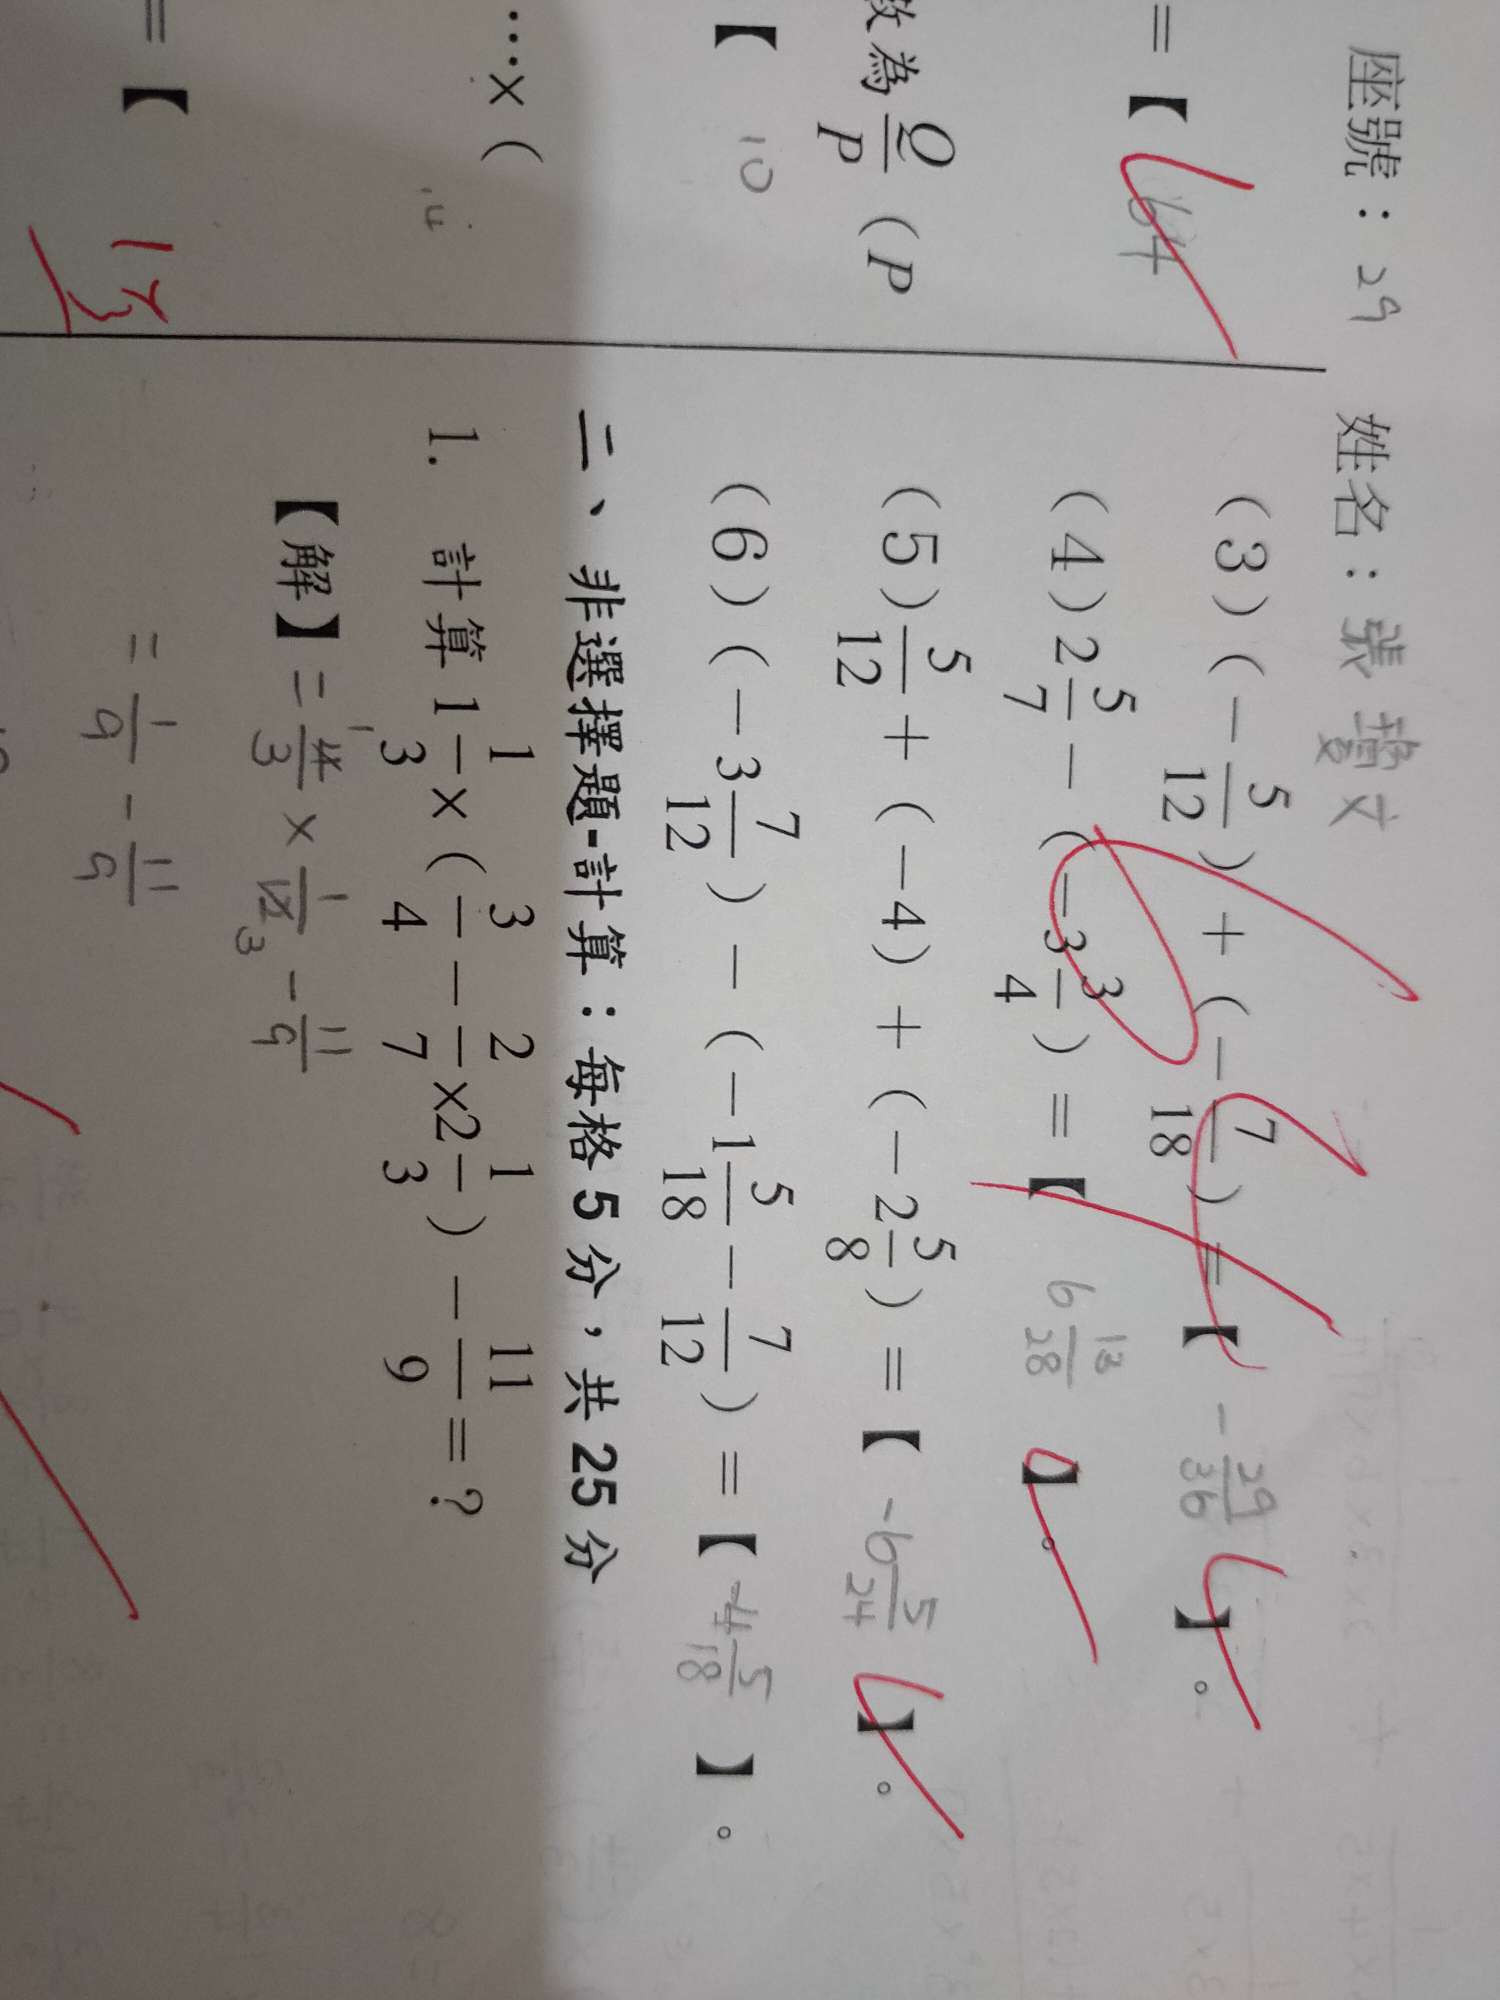 座號：29 姓名：張 文
=【 64
數為 Q/P (P
【 10
…×(
=【
13
(3) (-5/12) + (-7/18) =【 -29/36 】。
(4) 2 5/7 - (-3 3/4) =【 6 13/28 】。
(5) 5/12 + (-4) + (-2 5/8) =【 -6 5/24 】。
(6) (-3 7/12) - (-1 5/18 - 7/12) =【 -4 5/18 】。
二、非選擇題-計算：每格 5 分，共 25 分
1. 計算 1 1/3 × (3/4 - 2/7 × 2 1/3) - 11/9 = ?
【解】= 4/3 × 1/12 - 11/9
1 3
= 1/9 - 11/9